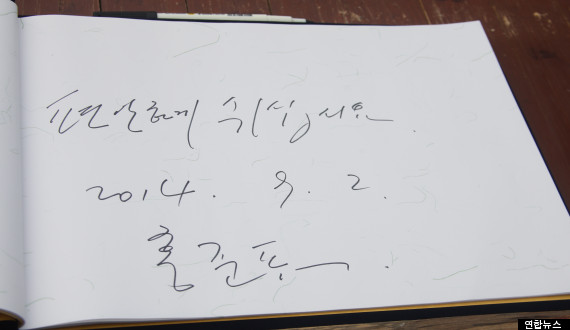 편안하게 쉬십시요.
2014. 9. 2.
홍준표.
연합뉴스